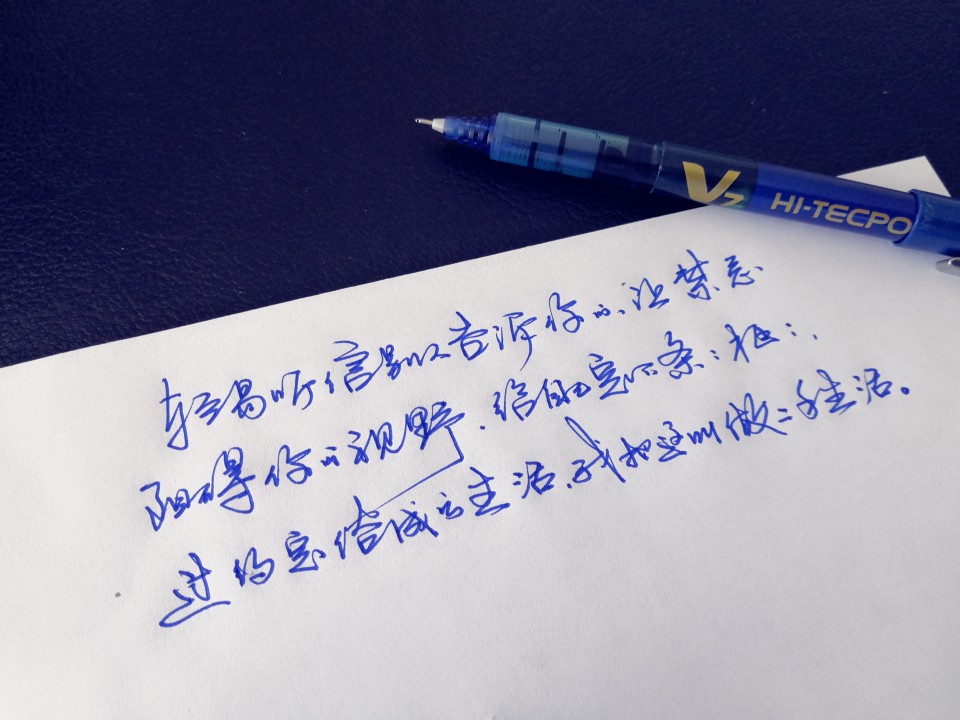 V7 HI-TECPO
轻易听信别人告诉你的,让禁忌
阻碍你的视野,给自己定下条:框:,
过约定俗成的生活,我把这叫做二手生活。